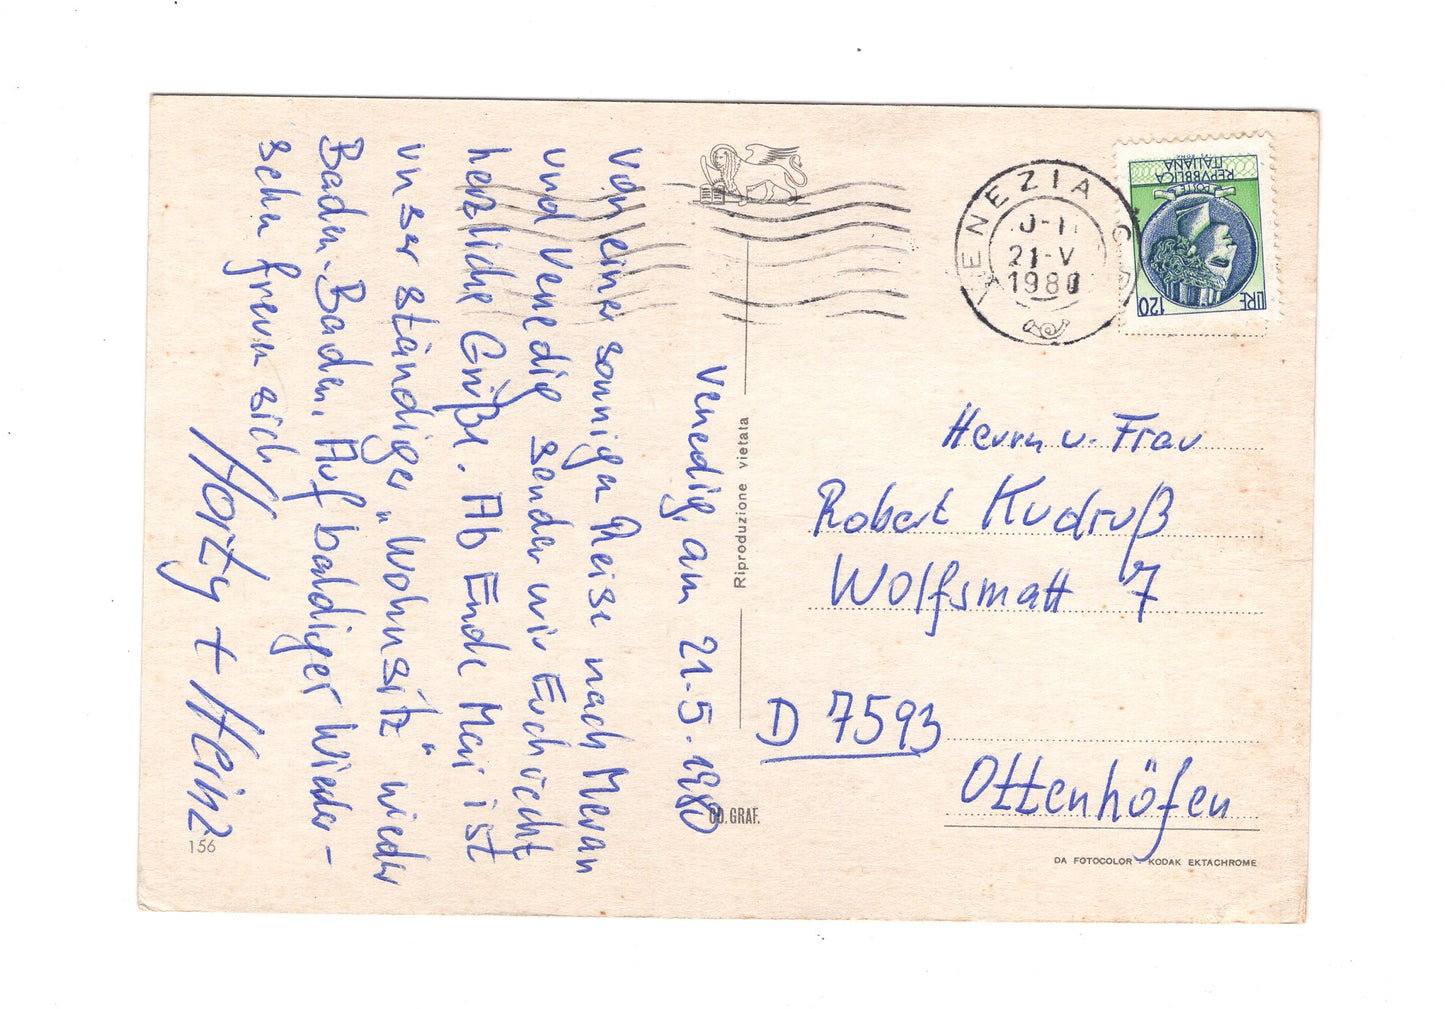 Venedig, am 21.5.1980
Von einer sonnigen Reise nach Meran
und Venedig senden wir Euch recht
herzliche Grüße. Ab Ende Mai ist
unser ständiger "Wohnsitz" wieder
Baden-Baden. Auf baldiges Wieder-
sehen freuen sich
Horty + Heinz
156
Riproduzione vietata
OD. GRAF.
VENEZIA
21-V
1980
POSTE
REPVBBLICA
ITALIANA
LIRE 120
Herrn u. Frau
Robert Kudruß
Wolfsmatt 7
D 7593
Ottenhöfen
DA FOTOCOLOR KODAK EKTACHROME